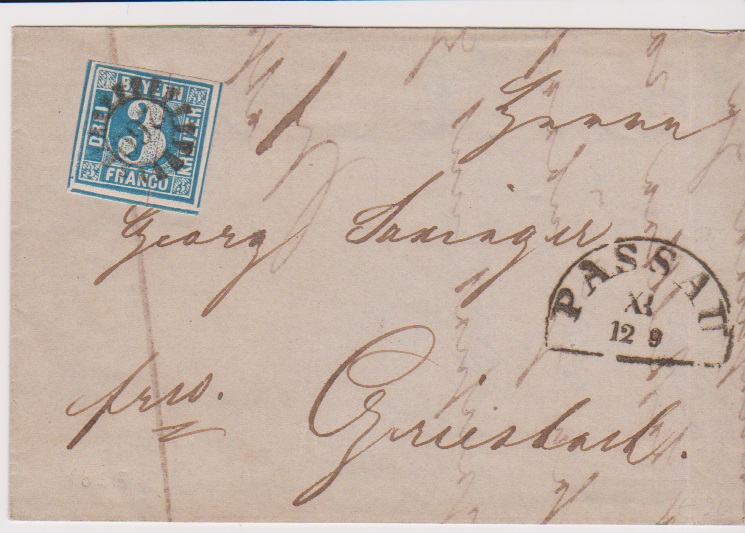 BAYERN
DREI
3
KREUZER
FRANCO
Herrn
Georg
PASSAU
XI
12 9
frco.
Griesbach.